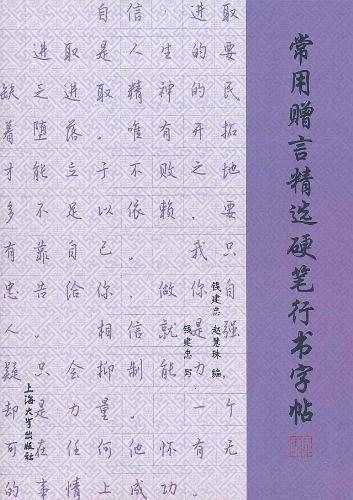 常用赠言精选硬笔行书字帖
钱建忠 赵慧珠 编
钱建忠 写
上海大学出版社
自信。进取
进取是人生的要
缺乏进取精神的民
着堕落。唯有开拓
才能立于不败之地
多不足以依赖,要
有靠自己。我只
忠告给你,做你自
人。相信就是强
疑只会抑制能力
却是力量。一个
可在任何他怀有无
的事情上成功